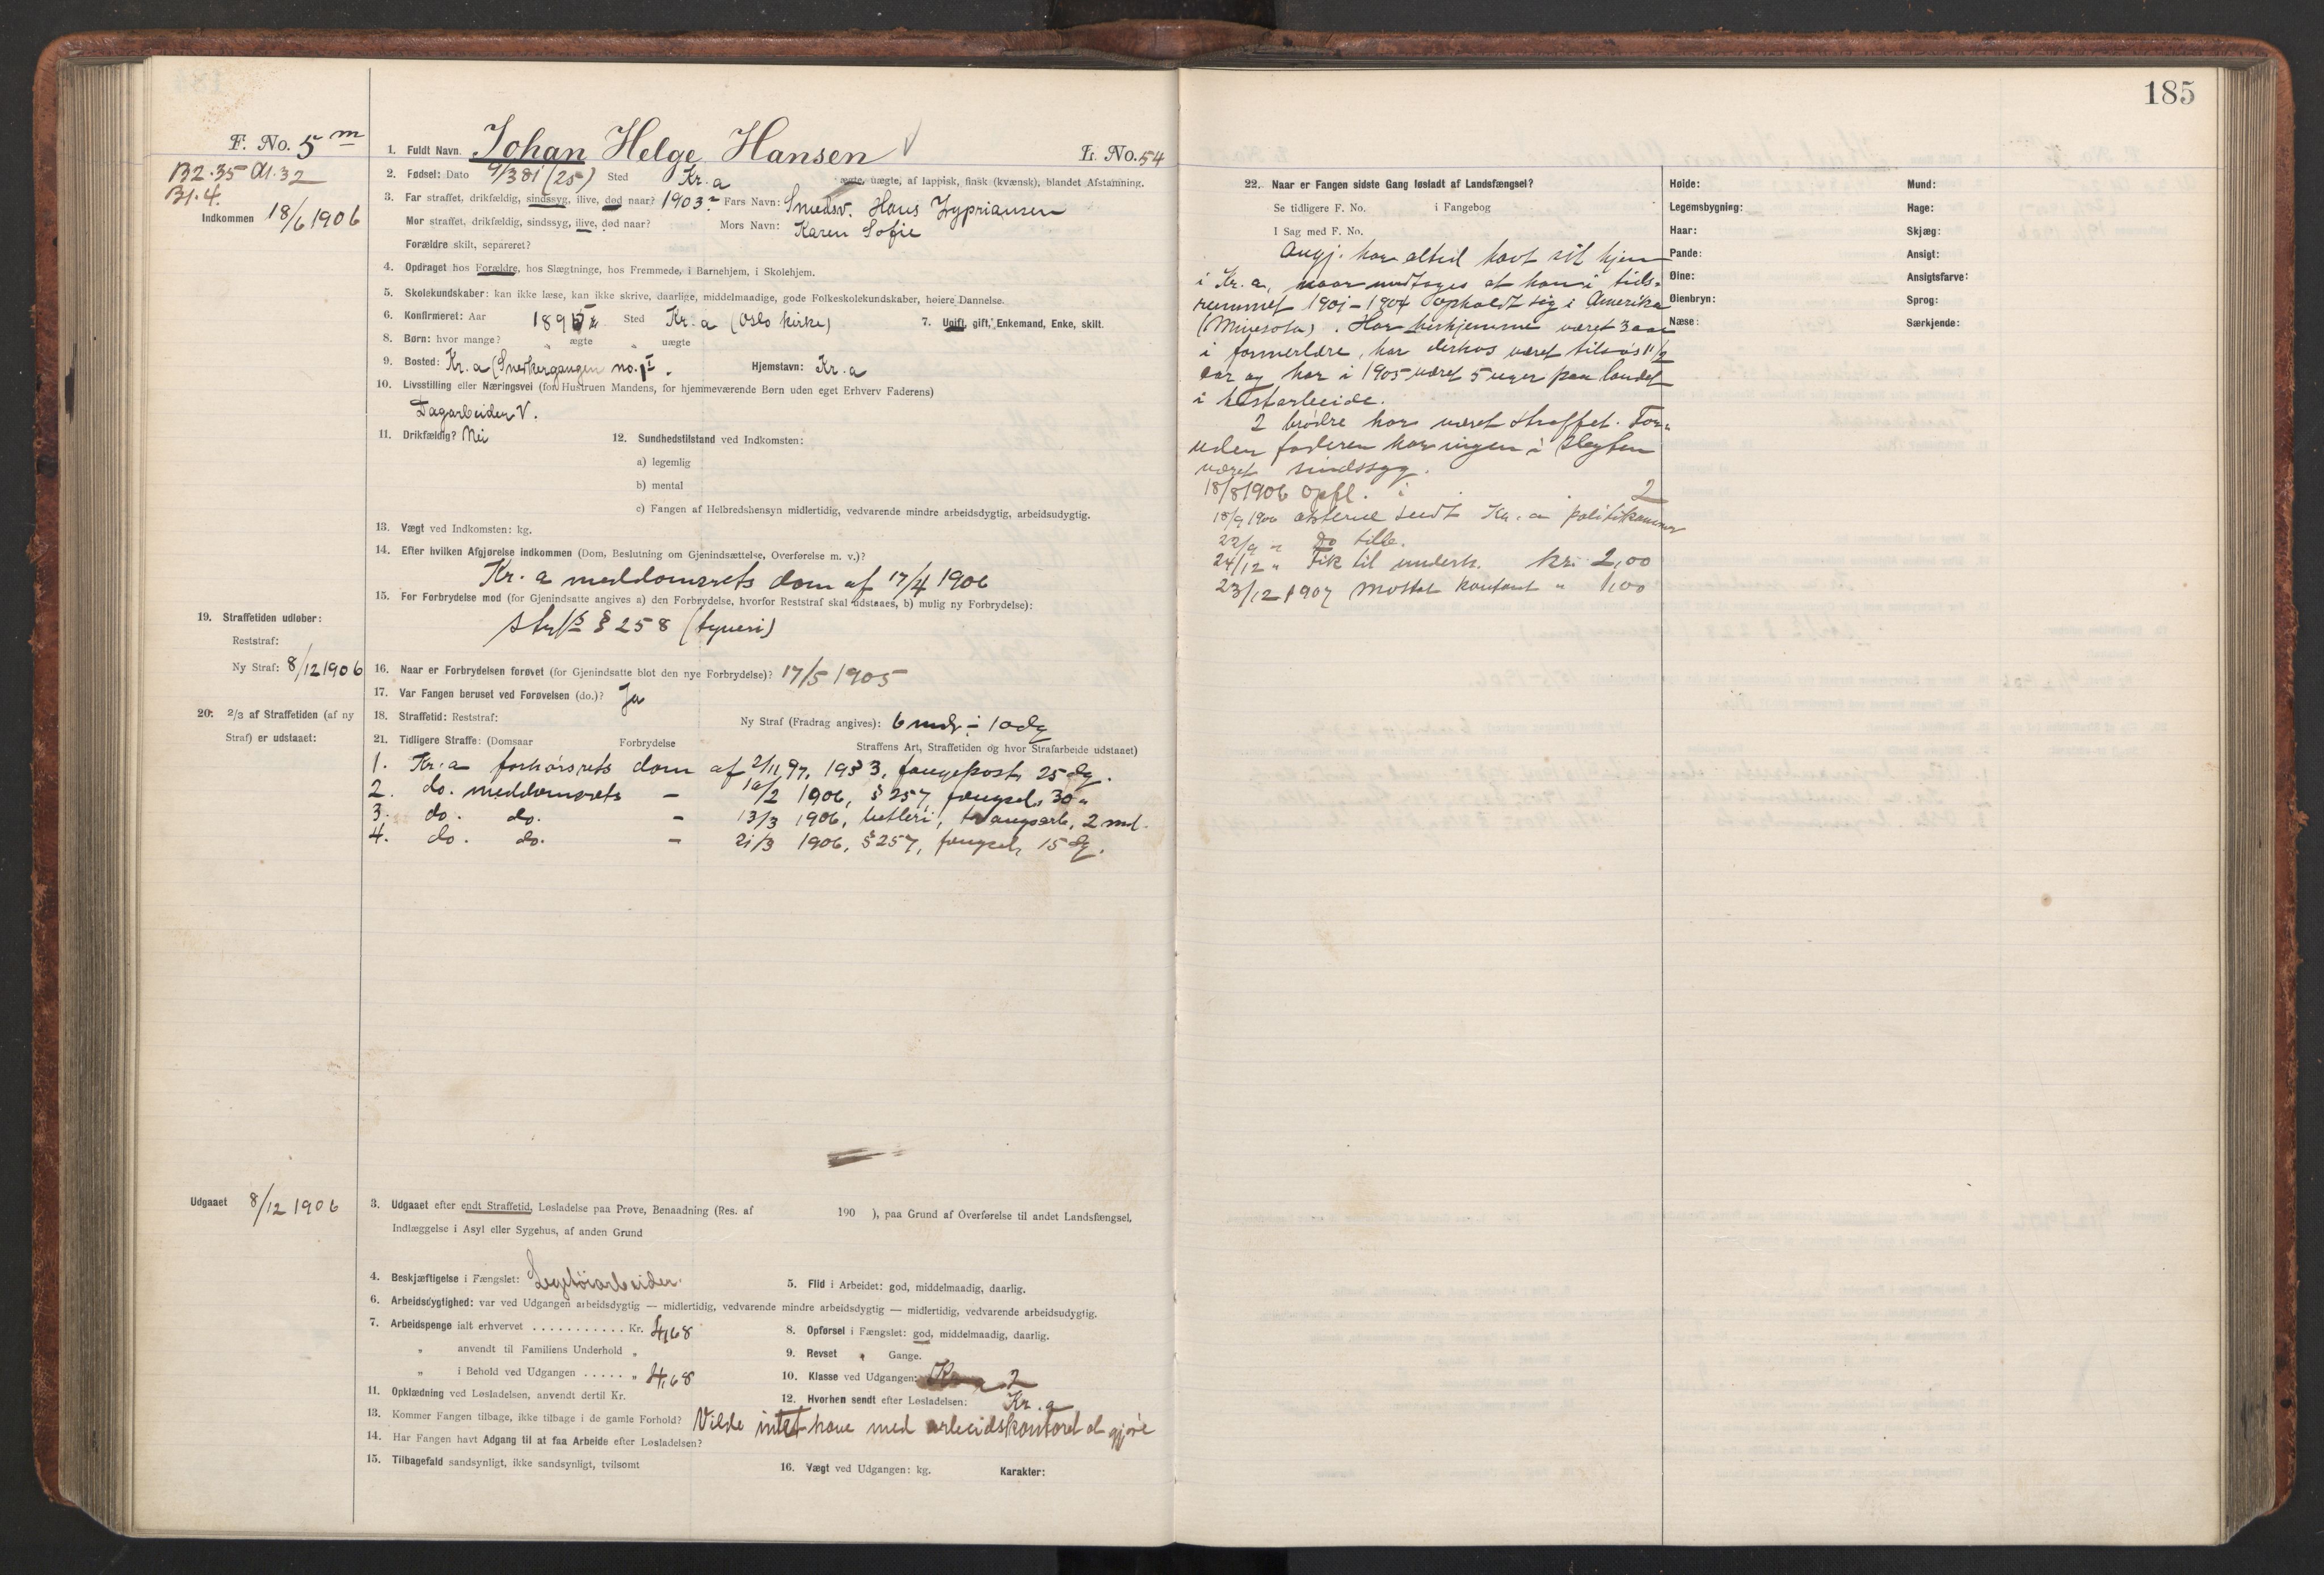 F. No. 5 m
B2.35 Al.32
B1.4.
Indkommen 18/6 1906
1. Fuldt Navn. Johan Helge Hansen L. No. 54
2. Fødsel: Dato 9/3 81 (25) Sted Kr.a ægte, uægte, af lappisk, finsk (kvænsk), blandet Afstamning.
3. Far straffet, drikfældig, sindssyg, ilive, død naar? 1903 Fars Navn: Smedsv. Hans Zypriansen
Mor straffet, drikfældig, sindssyg, ilive, død naar? Mors Navn: Karen Sofie
Forældre skilt, separeret?
4. Opdraget hos Forældre, hos Slægtninge, hos Fremmede, i Barnehjem, i Skolehjem.
5. Skolekundskaber: kan ikke læse, kan ikke skrive, daarlige, middelmaadige, gode Folkeskolekundskaber, høiere Dannelse.
6. Konfirmeret: Aar Sted Kr.a (Oslo kirke) 7. Ugift, gift, Enkemand, Enke, skilt.
8. Børn: hvor mange? " ægte " uægte
9. Bosted: Kr.a (Snekkergangen no. 1 I. Hjemstavn: Kr.a
10. Livsstilling eller Næringsvei (for Hustruen Mandens, for hjemmeværende Børn uden eget Erhverv Faderens)
Dagarbeider V.
11. Drikfældig? Nei 12. Sundhedstilstand ved Indkomsten:
a) legemlig
b) mental
c) Fangen af Helbredshensyn midlertidig, vedvarende mindre arbeidsdygtig, arbeidsudygtig.
13. Vægt ved Indkomsten: kg.
14. Efter hvilken Afgjørelse indkommen (Dom, Beslutning om Gjenindsættelse, Overførelse m. v.)?
Kr.a meddomsrets dom af 17/4 1906
15. For Forbrydelse mod (for Gjenindsatte angives a) den Forbrydelse, hvorfor Reststraf skal udstaaes, b) mulig ny Forbrydelse):
§ 258 (tyveri)
19. Straffetiden udløber:
Reststraf:
Ny Straf: 8/12 1906
16. Naar er Forbrydelsen forøvet (for Gjenindsatte blot den nye Forbrydelse)? 17/5 1905
17. Var Fangen beruset ved Forøvelsen (do.)? Ja
20. 2/3 af Straffetiden (af ny
Straf) er udstaaet:
18. Straffetid: Reststraf: Ny Straf (Fradrag angives): 6 mdr ÷ 10 dg
21. Tidligere Straffe: (Domsaar Forbrydelse Straffens Art, Straffetiden og hvor Strafarbeide udstaaet)
1. Kr.a forhørsrets dom af 2/11 97, fangekost, 25 dg.
2. do. meddomsrets - 10/2 1906, § 257, fængsel, 30 "
3. do. do. - 13/3 1906, betleri, tvangsarb, 2 md.
4. do. do. - 21/3 1906, § 257, fængsel, 15 dg.
Udgaaet 8/12 1906
3. Udgaaet efter endt Straffetid, Løsladelse paa Prøve, Benaadning (Res. af 190 ), paa Grund af Overførelse til andet Landsfængsel,
Indlæggelse i Asyl eller Sygehus, af anden Grund
4. Beskjæftigelse i Fængslet: Legetøiarbeider. 5. Flid i Arbeidet: god, middelmaadig, daarlig.
6. Arbeidsdygtighed: var ved Udgangen arbeidsdygtig — midlertidig, vedvarende mindre arbeidsdygtig — midlertidig, vedvarende arbeidsudygtig.
7. Arbeidspenge ialt erhvervet . . . . . . . . . . . Kr. 4,68 8. Opførsel i Fængslet: god, middelmaadig, daarlig.
" anvendt til Familiens Underhold " 9. Revset " Gange.
" i Behold ved Udgangen . . . . . " 4,68 10. Klasse ved Udgangen: 2
11. Opklædning ved Løsladelsen, anvendt dertil Kr. 12. Hvorhen sendt efter Løsladelsen: Kr.a
13. Kommer Fangen tilbage, ikke tilbage i de gamle Forhold? Vilde intet have med arbeidskontoret at gjøre
14. Har Fangen havt Adgang til at faa Arbeide efter Løsladelsen?
15. Tilbagefald sandsynligt, ikke sandsynligt, tvilsomt 16. Vægt ved Udgangen: kg. Karakter:
185
22. Naar er Fangen sidste Gang løsladt af Landsfængsel?
Se tidligere F. No. i Fangebog
I Sag med F. No.
Angj. har altid havt sit hjem
i Kr.a, naar undtages at han i tids-
rummet 1901-1904 opholdt sig i Amerika
(Minesota). Har herhjemme været 3 aar
i formerlære, har derhos været tilsøs 1 1/2
aar og har i 1905 været 5 uger paa landet
i høstarbeide.
2 brødre har været straffet. For-
uden faderen har ingen i slegten
været sindssyg.
18/8 1906 opfl. i 2
18/9 1906 akterne sendt Kr.a politikammer
22/9 " do tilb.
24/12 " Fik til underh. kr. 2,00
23/12 1907 Mottat kontant " 1,00
Høide: Mund:
Legemsbygning: Hage:
Haar: Skjæg:
Pande: Ansigt:
Øine: Ansigtsfarve:
Øienbryn: Sprog:
Næse: Særkjende: